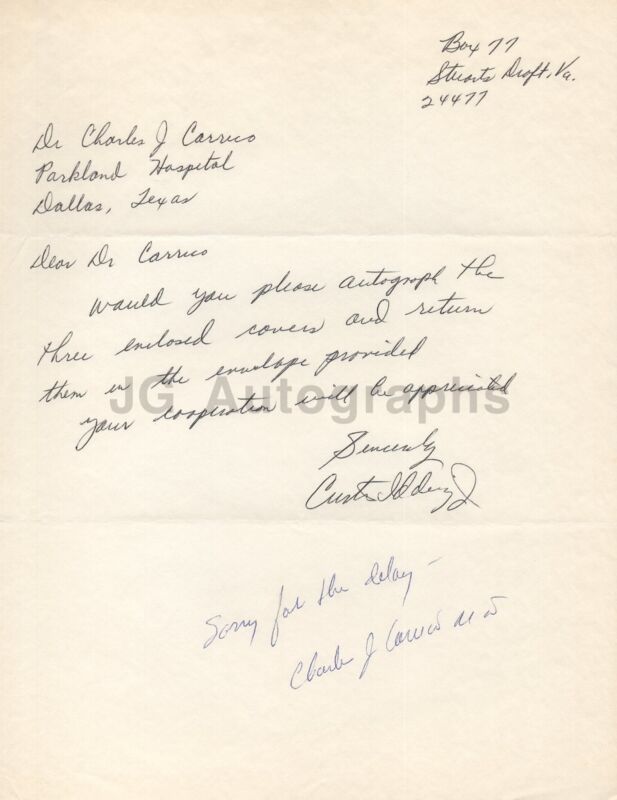 Box 77
Stuarts Draft, Va.
24477
Dr Charles J Carrico
Parkland Hospital
Dallas, Texas
Dear Dr Carrico
Would you please autograph the
three enclosed covers and return
them in the envelope provided
your cooperation will be appreciated
JG Autographs
Sincerely
Sorry for the delay -
Charles J Carrico M D